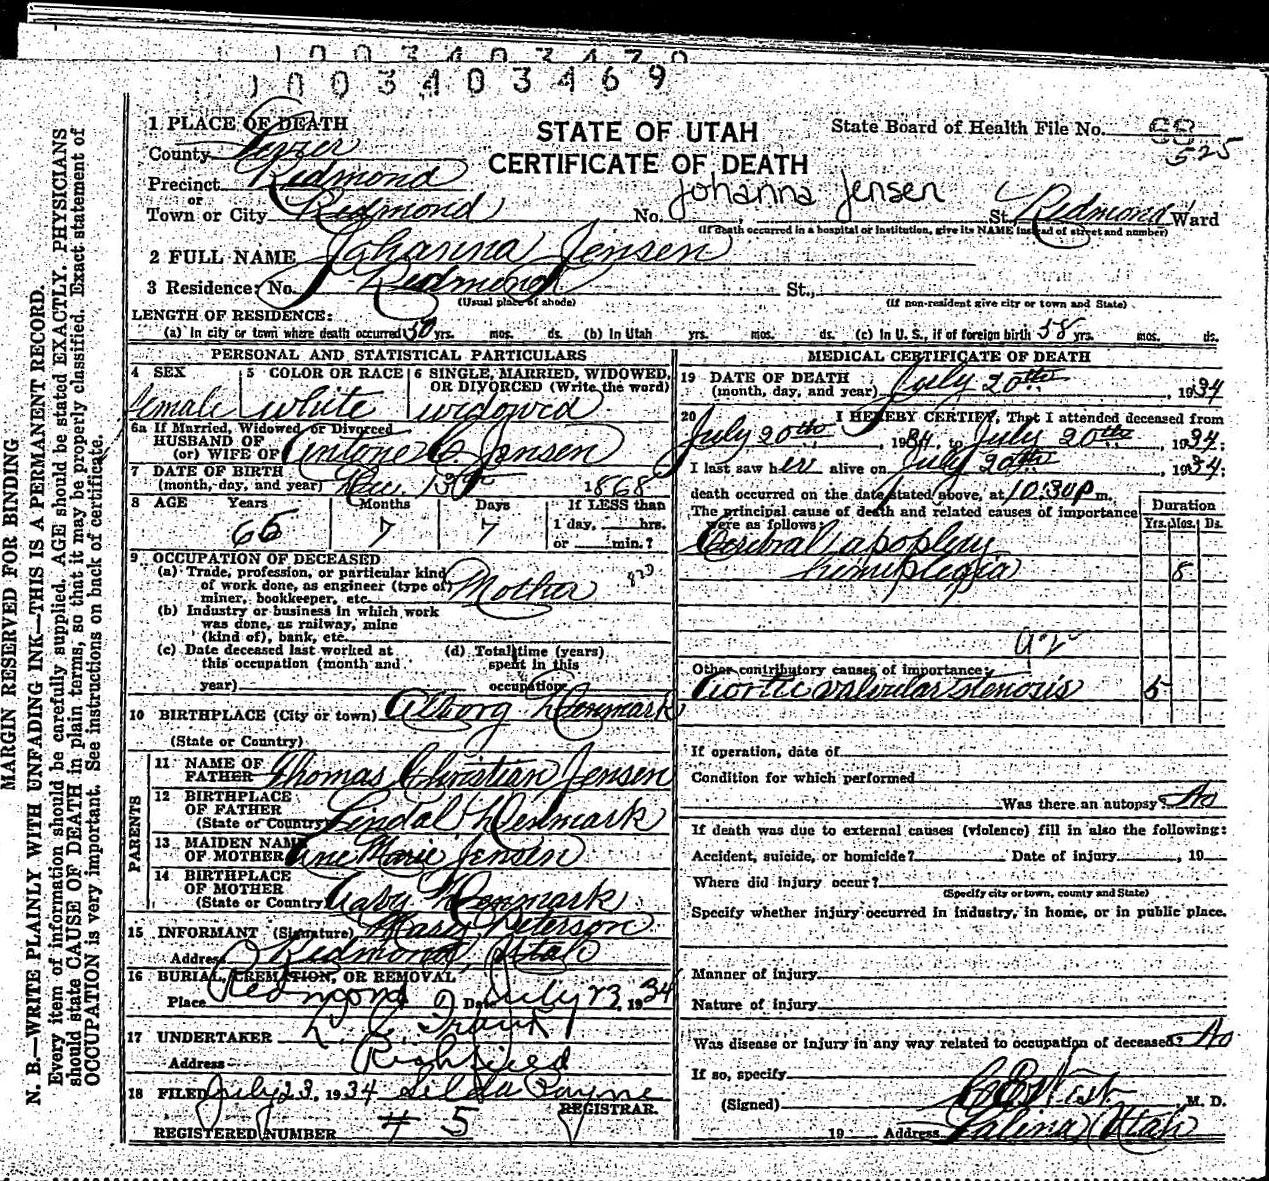 1003403469
1 PLACE OF DEATH
STATE OF UTAH
CERTIFICATE OF DEATH
State Board of Health File No. 88
525
County Sevier
Precinct Redmond
or
Town or City Redmond No. Johanna Jensen St. Redmond Ward
(If death occurred in a hospital or institution, give its NAME instead of street and number)
2 FULL NAME Johanna Jensen
3 Residence: No. Redmond St.,
(Usual place of abode) (If non-resident give city or town and State)
LENGTH OF RESIDENCE:
(a) In city or town where death occurred 50 yrs. mos. ds. (b) In Utah yrs. mos. ds. (c) In U. S., if of foreign birth 58 yrs. mos. ds.
PERSONAL AND STATISTICAL PARTICULARS
4 SEX female
5 COLOR OR RACE white
6 SINGLE, MARRIED, WIDOWED, OR DIVORCED (Write the word) widowed
6a If Married, Widowed or Divorced
HUSBAND OF
(or) WIFE OF Antone C Jensen
7 DATE OF BIRTH
(month, day, and year) Dec. 13th 1868
8 AGE Years Months Days If LESS than
1 day, hrs.
or min.?
65 7 7
9 OCCUPATION OF DECEASED
(a) Trade, profession, or particular kind
of work done, as engineer (type of
miner, bookkeeper, etc. Mother
(b) Industry or business in which work
was done, as railway, mine
(kind of), bank, etc.
(c) Date deceased last worked at
this occupation (month and
year)
(d) Total time (years)
spent in this
occupation
10 BIRTHPLACE (City or town) Alborg Denmark
(State or Country)
PARENTS
11 NAME OF
FATHER Thomas Christian Jensen
12 BIRTHPLACE
OF FATHER
(State or Country) Lindal Denmark
13 MAIDEN NAME
OF MOTHER Ane Marie Jensen
14 BIRTHPLACE
OF MOTHER
(State or Country) Denmark
15 INFORMANT (Signature) Mary Peterson
Address Redmond, Utah
16 BURIAL, CREMATION, OR REMOVAL
Place Redmond Date July 23, 1934
17 UNDERTAKER
Address Richfield
18 FILED July 23, 1934 Selda Payne
REGISTRAR.
REGISTERED NUMBER # 5
MEDICAL CERTIFICATE OF DEATH
19 DATE OF DEATH
(month, day, and year) July 20th, 1934
20 I HEREBY CERTIFY, That I attended deceased from
July 20th, 1934, to July 20th, 1934;
I last saw her alive on July 20th, 1934;
death occurred on the date stated above, at 10:30P m.
The principal cause of death and related causes of importance
were as follows:
Duration
Yrs. Mos. Ds.
Cerebral apoplexy
hemiplegia 8
Other contributory causes of importance:
Aortic valvular stenosis 5
If operation, date of
Condition for which performed
Was there an autopsy? No
If death was due to external causes (violence) fill in also the following:
Accident, suicide, or homicide? Date of injury, 19
Where did injury occur?
(Specify city or town, county and State)
Specify whether injury occurred in industry, in home, or in public place.
Manner of injury
Nature of injury
Was disease or injury in any way related to occupation of deceased? No
If so, specify
(Signed) M. D.
19 Address Salina, Utah
MARGIN RESERVED FOR BINDING
N. B.—WRITE PLAINLY WITH UNFADING INK—THIS IS A PERMANENT RECORD.
Every item of information should be carefully supplied. AGE should be stated EXACTLY. PHYSICIANS
should state CAUSE OF DEATH in plain terms, so that it may be properly classified. Exact statement of
OCCUPATION is very important. See instructions on back of certificate.